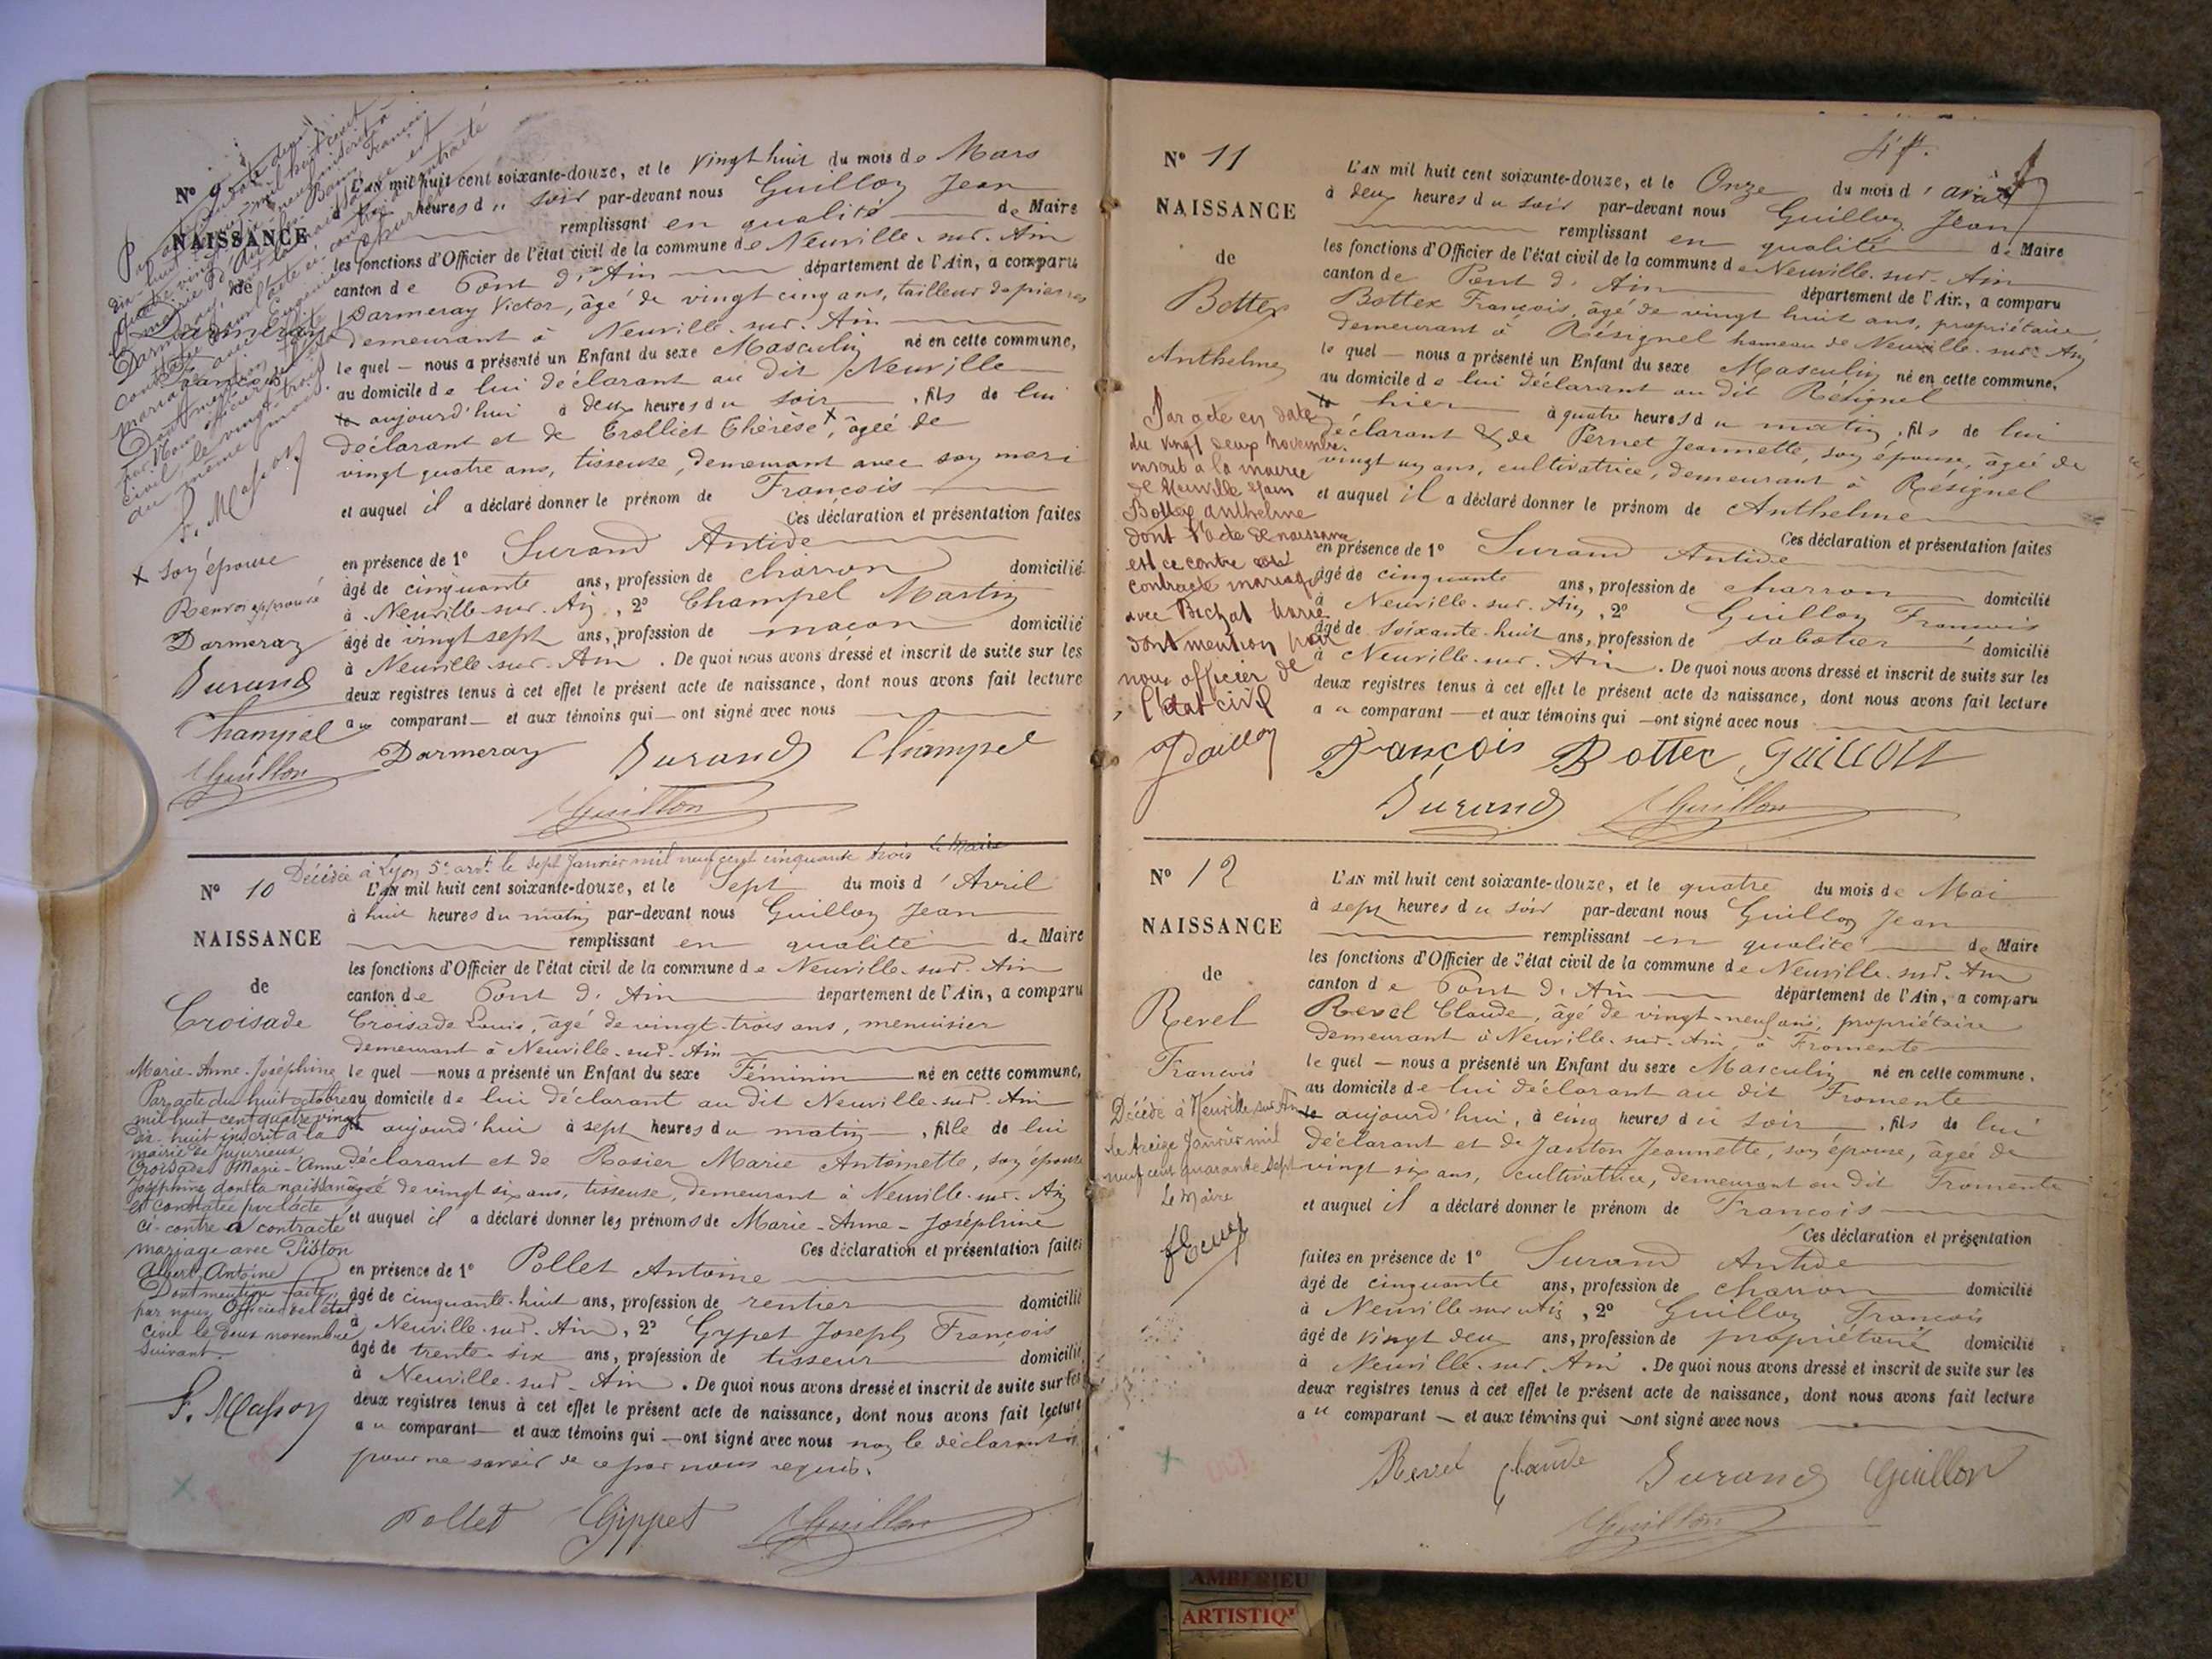 N° 9
NAISSANCE
de
Darmeray
François
L'AN mil huit cent soixante-douze, et le vingt huit du mois de Mars
heures du soir par-devant nous Guillon Jean
remplissant en qualité de Maire
les fonctions d'Officier de l'état civil de la commune de Neuville-sur-Ain
canton de Pont d'Ain département de l'Ain, a comparu
Darmeray Victor, âgé de vingt cinq ans, tailleur de pierres
demeurant à Neuville-sur-Ain
le quel — nous a présenté un Enfant du sexe Masculin né en cette commune,
au domicile de lui déclarant au dit Neuville
le aujourd'hui à deux heures du soir, fils de lui
déclarant et de Trolliet Thérèse x, âgée de
vingt quatre ans, tisseuse, demeurant avec son mari
et auquel il a déclaré donner le prénom de François
Ces déclaration et présentation faites
en présence de 1° Durand Antide
âgé de cinquante ans, profession de charron domicilié
à Neuville-sur-Ain, 2° Champel Martin
âgé de vingt sept ans, profession de maçon domicilié
à Neuville-sur-Ain. De quoi nous avons dressé et inscrit de suite sur les
deux registres tenus à cet effet le présent acte de naissance, dont nous avons fait lecture
au comparant — et aux témoins qui — ont signé avec nous
Darmeray Durand Champel
Guillon
civil le vingt-trois
du même mois.
F. Masson
x son épouse
Renvoi approuvé
Darmeray
Durand
Champel
Guillon
Décédée à Lyon 5e arrt le sept Janvier mil neuf cent cinquante trois Le Maire
N° 10
NAISSANCE
de
Croisade
Marie-Anne-Joséphine
L'AN mil huit cent soixante-douze, et le Sept du mois d'Avril
à huit heures du matin par-devant nous Guillon Jean
remplissant en qualité de Maire
les fonctions d'Officier de l'état civil de la commune de Neuville-sur-Ain
canton de Pont d'Ain département de l'Ain, a comparu
Croisade Louis, âgé de vingt-trois ans, menuisier
demeurant à Neuville-sur-Ain
le quel — nous a présenté un Enfant du sexe Féminin né en cette commune,
au domicile de lui déclarant au dit Neuville-sur-Ain
aujourd'hui à sept heures du matin, fille de lui
déclarant et de Rosier Marie Antoinette, son épouse
âgée de vingt six ans, tisseuse, demeurant à Neuville-sur-Ain
et auquel il a déclaré donner les prénoms de Marie-Anne-Joséphine
Ces déclaration et présentation faites
en présence de 1° Pollet Antoine
âgé de cinquante-huit ans, profession de rentier domicilié
à Neuville-sur-Ain, 2° Gypet Joseph François
âgé de trente-six ans, profession de tisseur domicilié
à Neuville-sur-Ain. De quoi nous avons dressé et inscrit de suite sur les
deux registres tenus à cet effet le présent acte de naissance, dont nous avons fait lecture
au comparant — et aux témoins qui — ont signé avec nous non le déclarant
pour ne savoir de ce par nous requis.
Pollet Gippet Guillon
Par acte du huit octobre
mil huit cent quatre vingt
dix-huit inscrit à la
mairie de Jujurieux
Croisade Marie-Anne
Joséphine dont la naissance
est constatée par l'acte
ci-contre a contracté
mariage avec Piston
Albert Antoine
Dont mention faite
par nous Officier de l'état
civil le deux novembre
suivant.
F. Masson
N° 11
NAISSANCE
de
Bottex
Anthelme
L'AN mil huit cent soixante-douze, et le Onze du mois d'avril
à deux heures du soir par-devant nous Guillon Jean
remplissant en qualité de Maire
les fonctions d'Officier de l'état civil de la commune de Neuville-sur-Ain
canton de Pont d'Ain département de l'Ain, a comparu
Bottex François, âgé de vingt huit ans, propriétaire
demeurant à Résignel hameau de Neuville-sur-Ain
le quel — nous a présenté un Enfant du sexe Masculin né en cette commune,
au domicile de lui déclarant au dit Résignel
le hier à quatre heures du matin, fils de lui
déclarant & de Pernet Jeannette, son épouse, âgée de
vingt un ans, cultivatrice, demeurant à Résignel
et auquel il a déclaré donner le prénom de Anthelme
Ces déclaration et présentation faites
en présence de 1° Durand Antide
âgé de cinquante ans, profession de charron domicilié
à Neuville-sur-Ain, 2° Guillon François
âgé de soixante-huit ans, profession de sabotier domicilié
à Neuville-sur-Ain. De quoi nous avons dressé et inscrit de suite sur les
deux registres tenus à cet effet le présent acte de naissance, dont nous avons fait lecture
au comparant — et aux témoins qui — ont signé avec nous
François Bottex Guillon
Durand Guillon
Par acte en date
du vingt deux Novembre
inscrit à la mairie
de Neuville s/ain
Bottex anthelme
dont l'acte de naissance
est ci contre a
contracté mariage
avec Bichat Marie
dont mention par
nous officier de
l'état civil
N° 12
NAISSANCE
de
Revel
François
L'AN mil huit cent soixante-douze, et le quatre du mois de Mai
à sept heures du soir par-devant nous Guillon Jean
remplissant en qualité de Maire
les fonctions d'Officier de l'état civil de la commune de Neuville-sur-Ain
canton de Pont d'Ain département de l'Ain, a comparu
Revel Claude, âgé de vingt-neuf ans, propriétaire
demeurant à Neuville-sur-Ain, à Fromente
le quel — nous a présenté un Enfant du sexe Masculin né en cette commune,
au domicile de lui déclarant au dit Fromente
le aujourd'hui, à cinq heures du soir, fils de lui
déclarant et de Janton Jeannette, son épouse, âgée de
vingt six ans, cultivatrice, demeurant au dit Fromente
et auquel il a déclaré donner le prénom de François
Ces déclaration et présentation
faites en présence de 1° Durand Antide
âgé de cinquante ans, profession de charron domicilié
à Neuville-sur-Ain, 2° Guillon François
âgé de vingt deux ans, profession de propriétaire domicilié
à Neuville-sur-Ain. De quoi nous avons dressé et inscrit de suite sur les
deux registres tenus à cet effet le présent acte de naissance, dont nous avons fait lecture
au comparant — et aux témoins qui — ont signé avec nous
Revel Claude Durand Guillon
Guillon
Décédé à Neuville-sur-Ain
Le treize Janvier mil
neuf cent quarante sept
Le Maire
AMBERIEU
ARTISTIQ